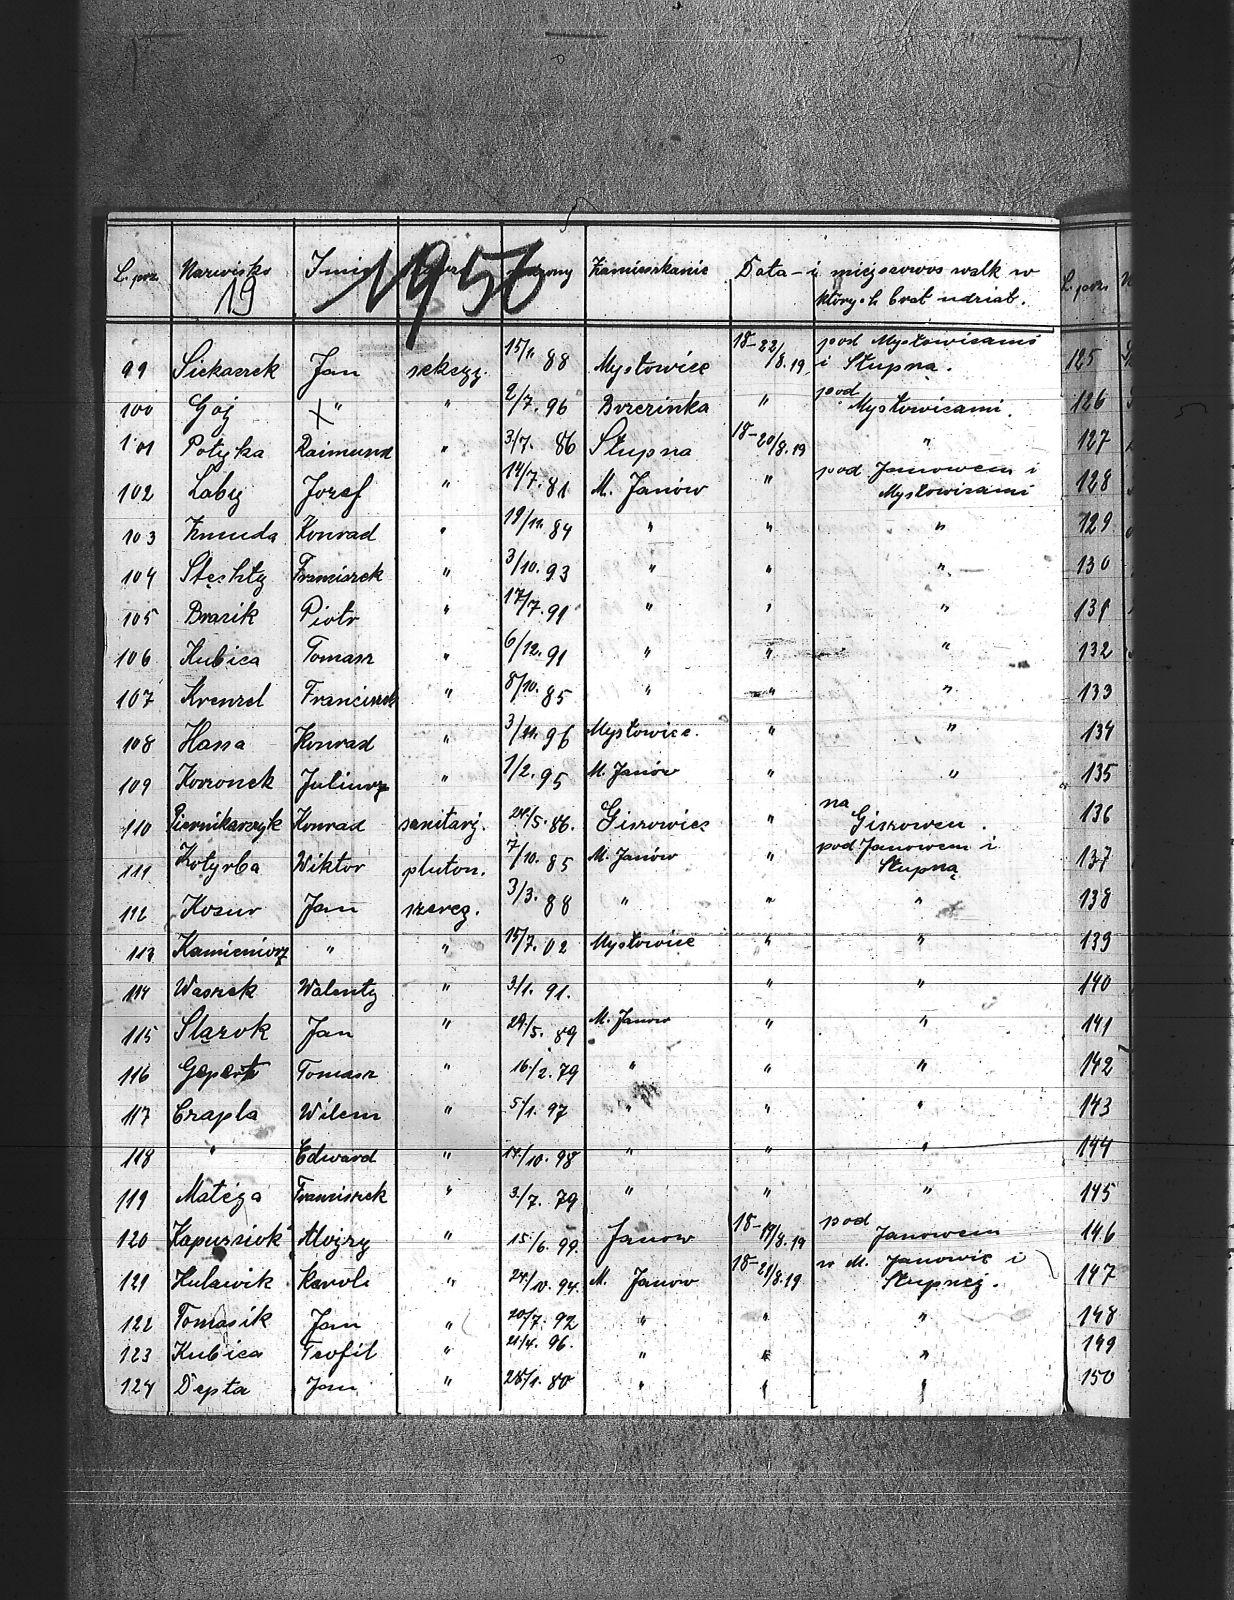 L. porz. Nazwisko Imię urodzony Zamieszkanie Data - i miejscowość walk w
19 1950 których brał udział.
99 Siekaczek Jan sekcyj. 15/11 88 Mysłowice 18-22/8.19 pod Mysłowicami i Słupną.
100 Goj X " " 2/7. 96 Brzezinka " pod Mysłowicami.
101 Potyka Raimund " 3/7. 86 Słupna 18-20/8.19 "
102 Laby Jozef " 14/7. 81 M. Janów " pod Janowem i Mysłowicami
103 Żmuda Konrad " 19/11. 84 " " "
104 Stęchły Franciszek " 3/10. 93 " " "
105 Brasik Piotr " 17/7. 91 " " "
106 Kubica Tomasz " 6/12. 91 " " "
107 Krenzel Franciszek " 8/10. 85 " " "
108 Hassa Konrad " 3/11. 96 Mysłowice. " "
109 Koszonek Juliusz " 1/2. 95 M. Janów " "
110 Piernikarczyk Konrad sanitarj. 24/5. 86. Giszowiec " na Giszowcu.
111 Kotyrba Wiktor pluton. 7/10. 85 M. Janów " pod Janowem i Słupną
112 Kosur Jan szereg. 3/3. 88 " " "
113 Kamieniorz " " 15/7. 02 Mysłowice " "
114 Waszek Walenty " 3/1. 91. " "
115 Slązok Jan " 29/5. 89 M. Janów " "
116 Gepert Tomasz " 16/2. 79 " " "
117 Czapla Wilem " 5/1. 97 " " "
118 " Edward " 17/10. 98 " " "
119 Matéja Franciszek " 3/7. 79 " " "
120 Kapuśniok Alojzy " 15/6. 99. Janów 18-19/8.19 pod Janowem
121 Kulawik Karol " 24/10. 94. M. Janów 18-21/8.19 w M. Janowie i Słupnej.
122 Tomasik Jan " 20/7. 92 " " "
123 Kubica Teofil " 21/4. 96. " " "
124 Depta Jan " 28/1. 80 " " "
L. porz. N
125
126
127
128
129
130
131
132
133
134
135
136
137
138
139
140
141
142
143
144
145
146
147
148
149
150